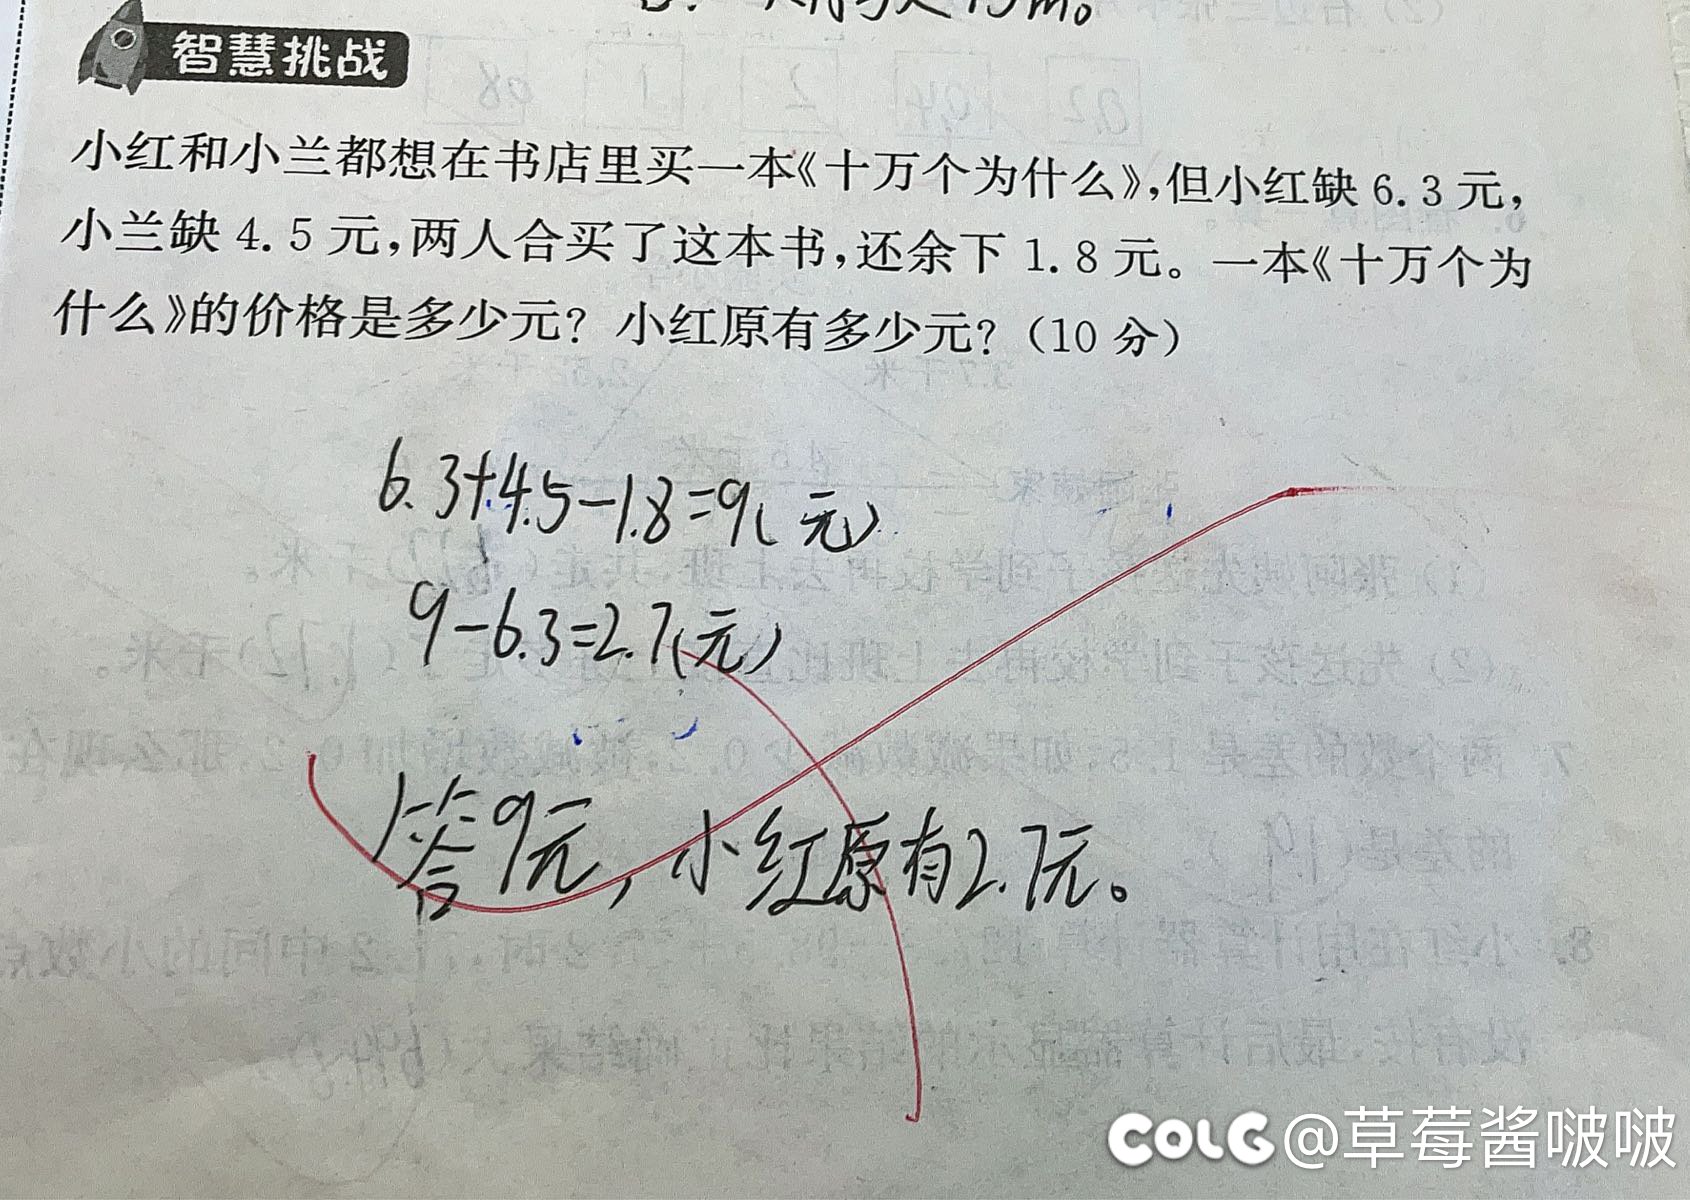 智慧挑战
小红和小兰都想在书店里买一本《十万个为什么》,但小红缺6.3元,
小兰缺4.5元,两人合买了这本书,还余下1.8元。一本《十万个为
什么》的价格是多少元?小红原有多少元?(10分)
6.3+4.5-1.8=9(元)
9-6.3=2.7(元)
答9元,小红原有2.7元。
COLG @草莓酱啵啵